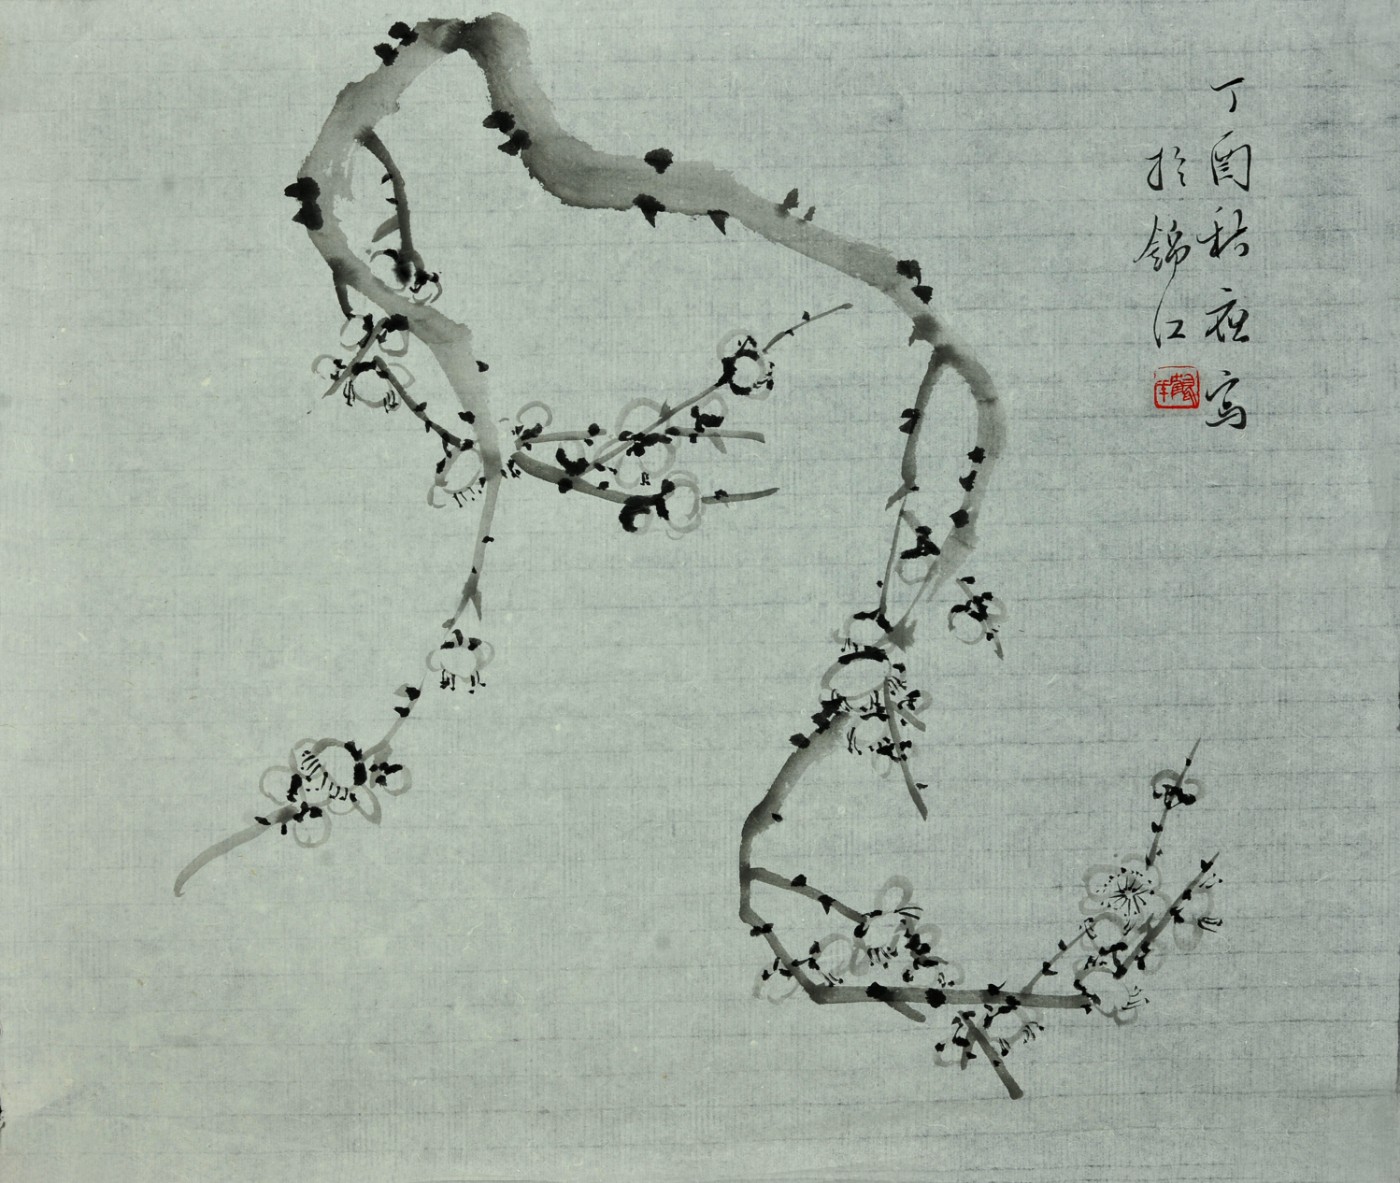 丁酉秋夜写
於錦江